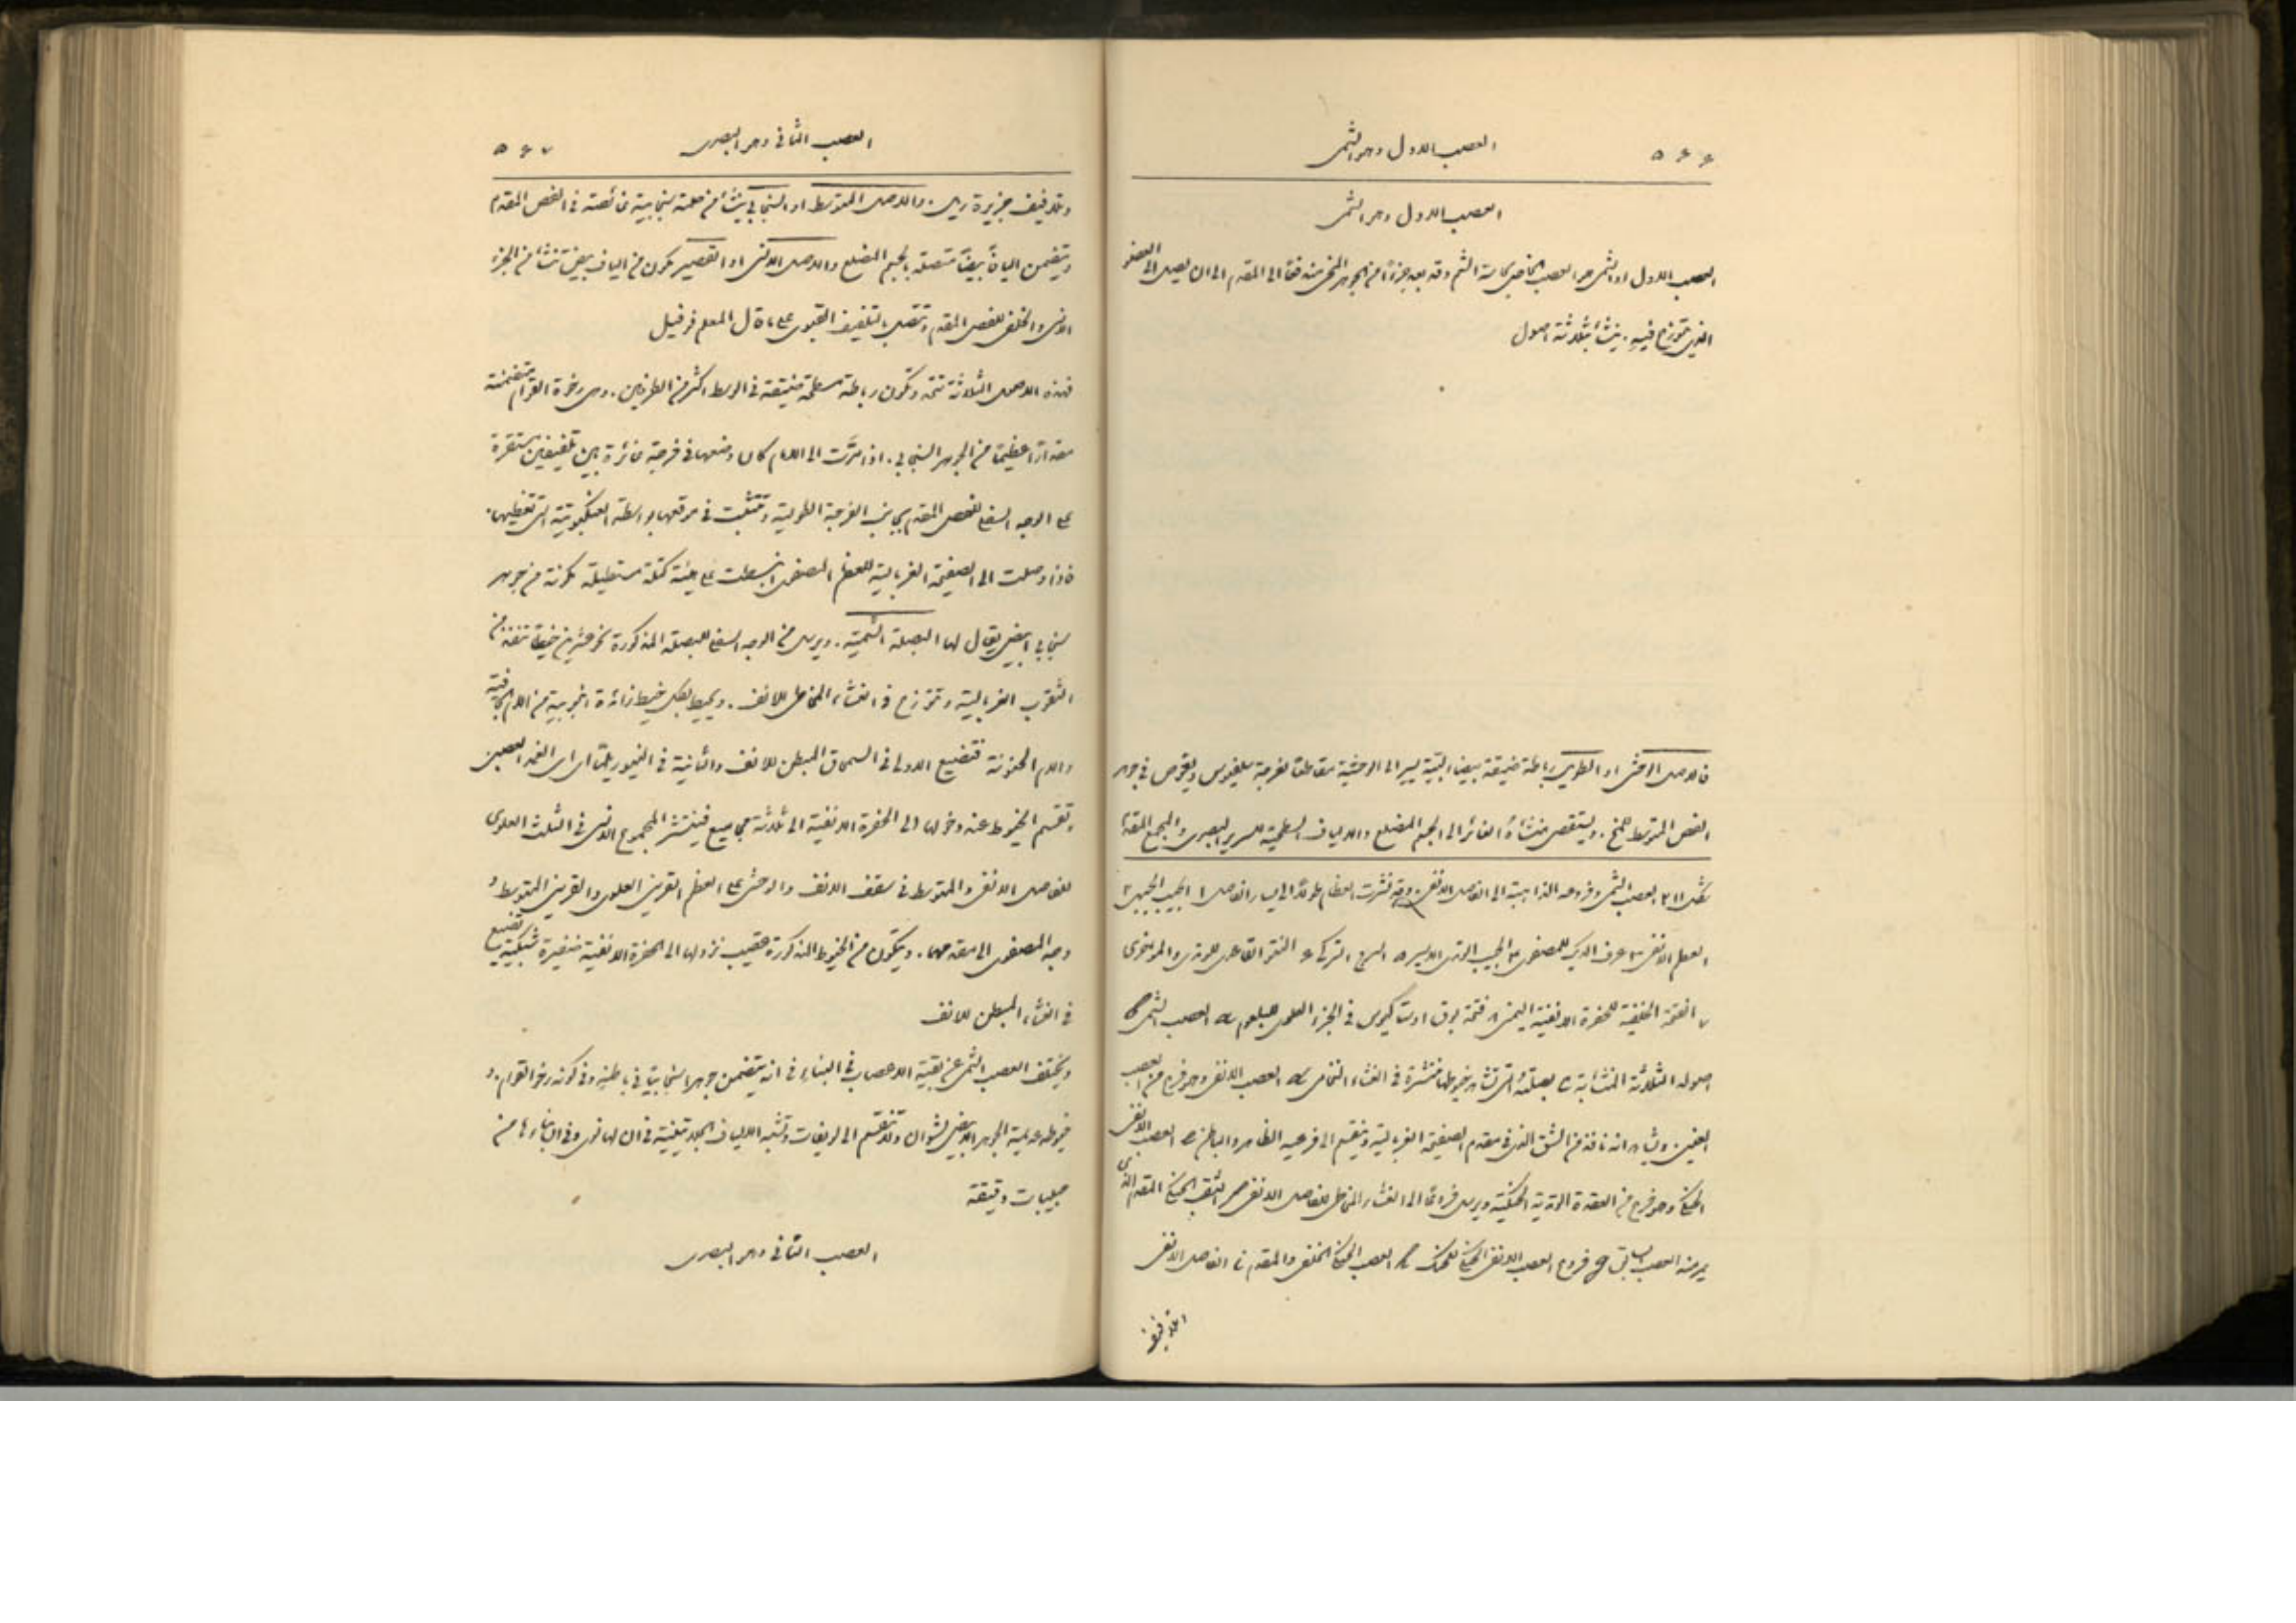 ٥٦٦
العصب الاول وهو الشمى
العصب الاول وهو الشمى
العصب الاول او الشمى هو العصب الخاص بحاسة الشم وقد يعد جزءًا من الجوهر المخى مندفعًا الى المقدم الى ان يصل الى العضو
الذى يتوزع فيه. ينشأ بثلاثة اصول
فالاصل الوحشى او الطويل رباطة ضيقة بيضاء لبية يسير الى الوحشية مقاطعًا لفرجة سلفيوس ويغوص فى جوهر
الفص المتوسط للمخ. ويستقصى منشأهُ الغائر الى الجسم المضلع والالياف السطحية للسرير البصرى والمجمع المقدم
شكل ٢١١ العصب الشمى وفروعه الذاهبة الى الفاصل الانفى. وقد نشرت العظام طولاً الى يسار الفاصل ١ الجيب الجبهى ٢
العظم الانفى ٣ عرف الديك للمصفوى ٤ الجيب الوتدى الايسر ٥ السرج التركى ٦ النتو القاعدى للوتدى والمؤخرى
٧ الفتحة الخلفية للحفرة الانفية اليمنى ٨ فتحة بوق اوستاكيوس فى الجزء العلوى للبلعوم العصب الشمى
اصوله الثلاثة المنشأية بصلته التى تشاهد خيوطها منتشرة فى الغشاء النخامى العصب الانفى وهو فرع من العصب
العينى ويشاهد انه نافذ من الشق الذى فى مقدم الصفيحة الغربالية وينقسم الى فرعيه الظاهر والباطن العصب الانفى
الحنكى وهو فرع من العقدة الوتدية الحنكية ويرسل فروعًا الى الغشاء المخاطى للفاصل الانفى الثقب الحنكى المقدم الذى
يمر منه العصب السابق فروع العصب الانفى الحنكى للحنك العصب الحنكى الخلفى والمقدم الفاصل الانفى
٥٦٧
العصب الثانى وهو البصرى
وتلافيف جزيرة ريل. والاصل المتوسط او السنجابى ينشأ من حلمة سنجابية غائصة فى الفص المقدم
ويتضمن اليافًا بيضًا متصلة بالجسم المضلع والاصل الانسى او القصير يتكون من الياف بيض تنشأ من الجزء
الانسى والخلفى للفص المقدم وتتصل بالتلفيف القبوى على ما قال المعلم فوفيل
فهذه الاصول الثلاثة تتحد وتكون رباطة مسطحة ضيقة فى الوسط اكثر من الطرفين. وهى رخوة القوام متضمنة
مقدارًا عظيمًا من الجوهر السنجابى. اذا مرَّت الى الامام كان وضعها فى فرجة غائرة بين تلفيفين مستقرة
على الوجه السفلى للفص المقدم بجانب الفرجة الطولية وتتثبت فى موقعها بواسطة العنكبوتية التى تغطيها.
فاذا وصلت الى الصفيحة الغربالية للعظم المصفوى انبسطت على هيئة كتلة مستطيلة مكونة من جوهر
سنجابى ابيض يقال لها البصلة الشمية. ويرسل من الوجه السفلى للبصلة المذكورة نحو عشرين خيطًا تنفذ من
الثقوب الغربالية وتتوزع فى الغشاء المخاطى للانف. ويحيط بكل خيط زائدة انبوبية من الام الجافية
والام الحنونة فتضيع الاولى فى السمحاق المبطن للانف والثانية فى النيوريلما اى الغمد العصبى
وتقسم الخيوط عند دخولها الى الحفرة الانفية الى ثلاثة مجاميع فينتشر المجموع الانسى فى الثلث العلوى
للفاصل الانفى والمتوسط فى سقف الانف والوحشى على العظم القرينى العلوى والقرينى المتوسط و
وجه المصفوى الى مقدمهما. ويتكون من الخيوط المذكورة عقيب نزولها الى الحفرة الانفية ضفيرة شبكية تضيع
فى الغشاء المبطن للانف
ويختلف العصب الشمى عن بقية الاعصاب فى البناء فى انه يتضمن جوهرا سنجابيًا فى باطنه وفى كونه رخو القوام. و
خيوطه عديمة الجوهر الابيض لشوان ولا تنقسم الى لويفات وتشبه الالياف الجلاتينية فى ان لها نوى وفى ان بناءها من
حبيبات دقيقة
العصب الثانى وهو البصرى